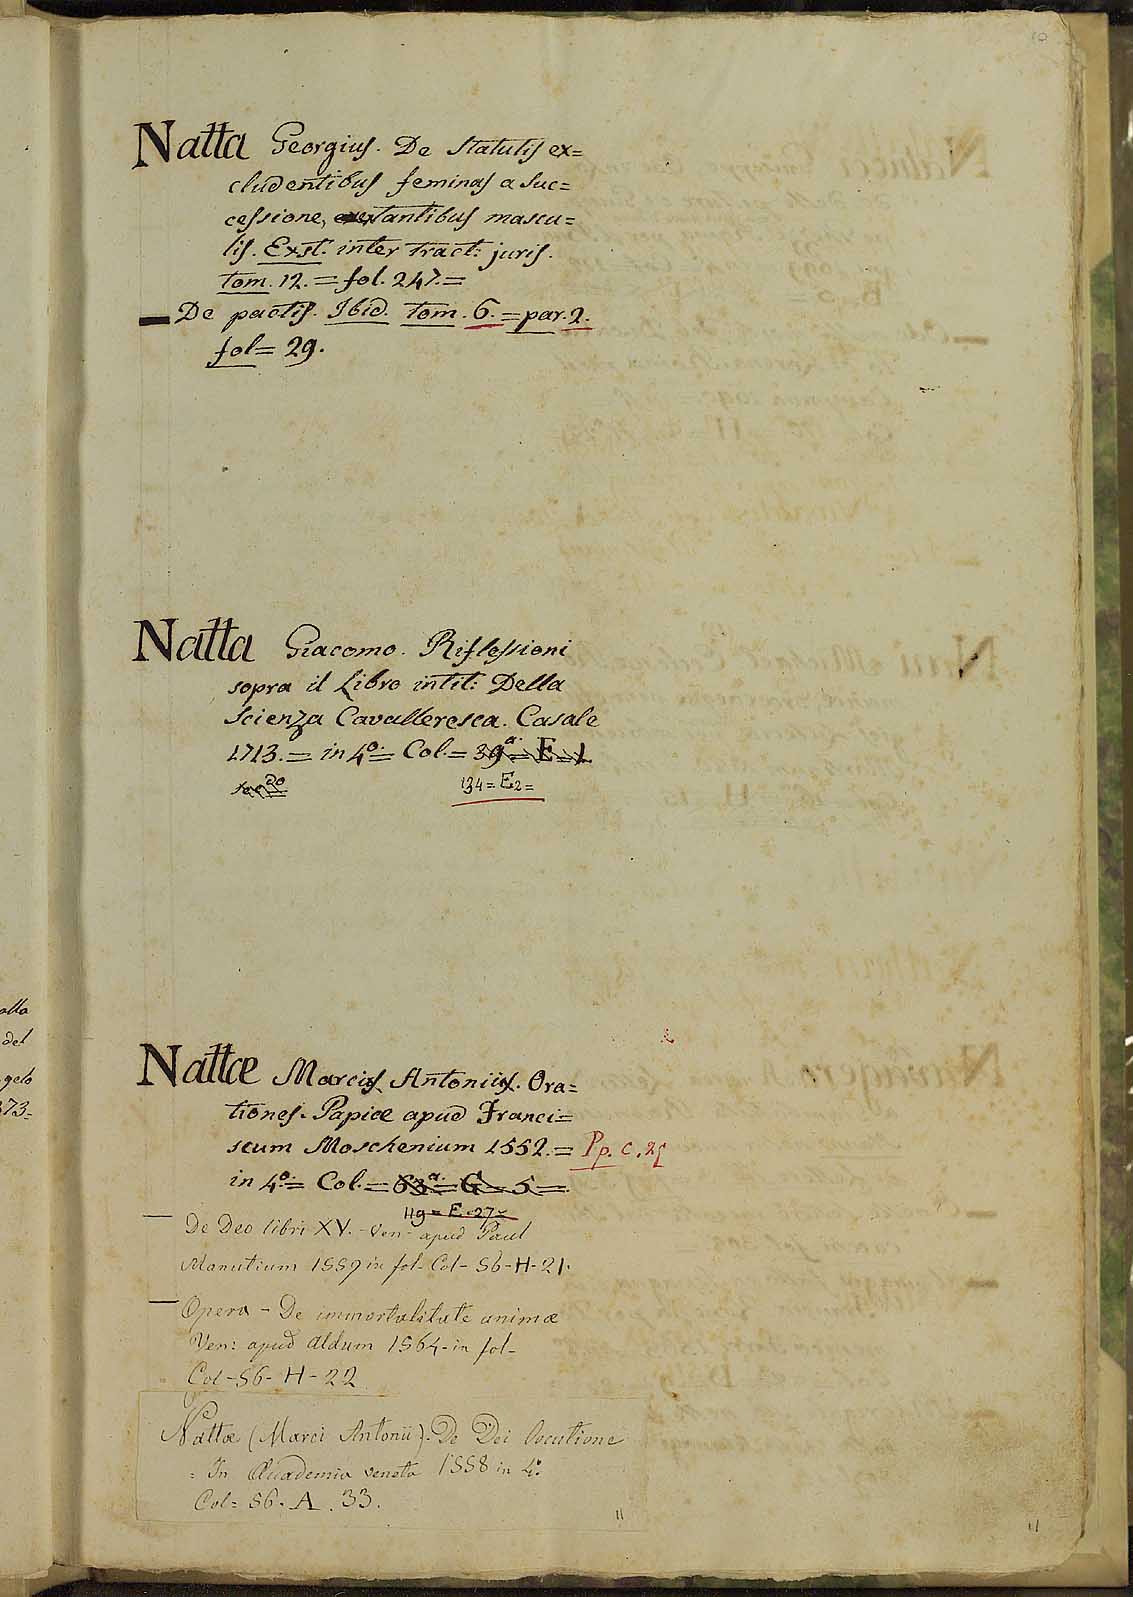 Natta Georgius. De Statutis ex=
cludentibus feminas a suc=
cessione, extantibus mascu=
lis. Exst. inter tract: juris.
tom. 12. = fol. 247. =
— De pactis. Ibid. tom. 6. = par. 2.
fol = 29.
Natta Giacomo. Riflessioni
sopra il Libro intit: Della
Scienza Cavalleresca. Casale
1713. = in 4º = Col. = 39ª = E = 1
134 = E 2 =
Nattæ Marcus Antonius. Ora=
tiones. Papiæ apud Franci=
scum Moschenium 1552. = Pp. C. 25
in 4º = Col. = 63ª = G = 5 =.
119 = E. 27 =
— De Deo libri XV. - Ven- apud Paul
Manutium 1559 in fol- Col- 56-H-21.
— Opera - De immortalitate animæ
Ven: apud Aldum 1564- in fol-
Col-56- H-22
Nattæ (Marci Antonii). De Dei locutione
= In Academia veneta 1558 in 4º.
Col = 56. A. 33.
11
11
alla
del
gelo
73=